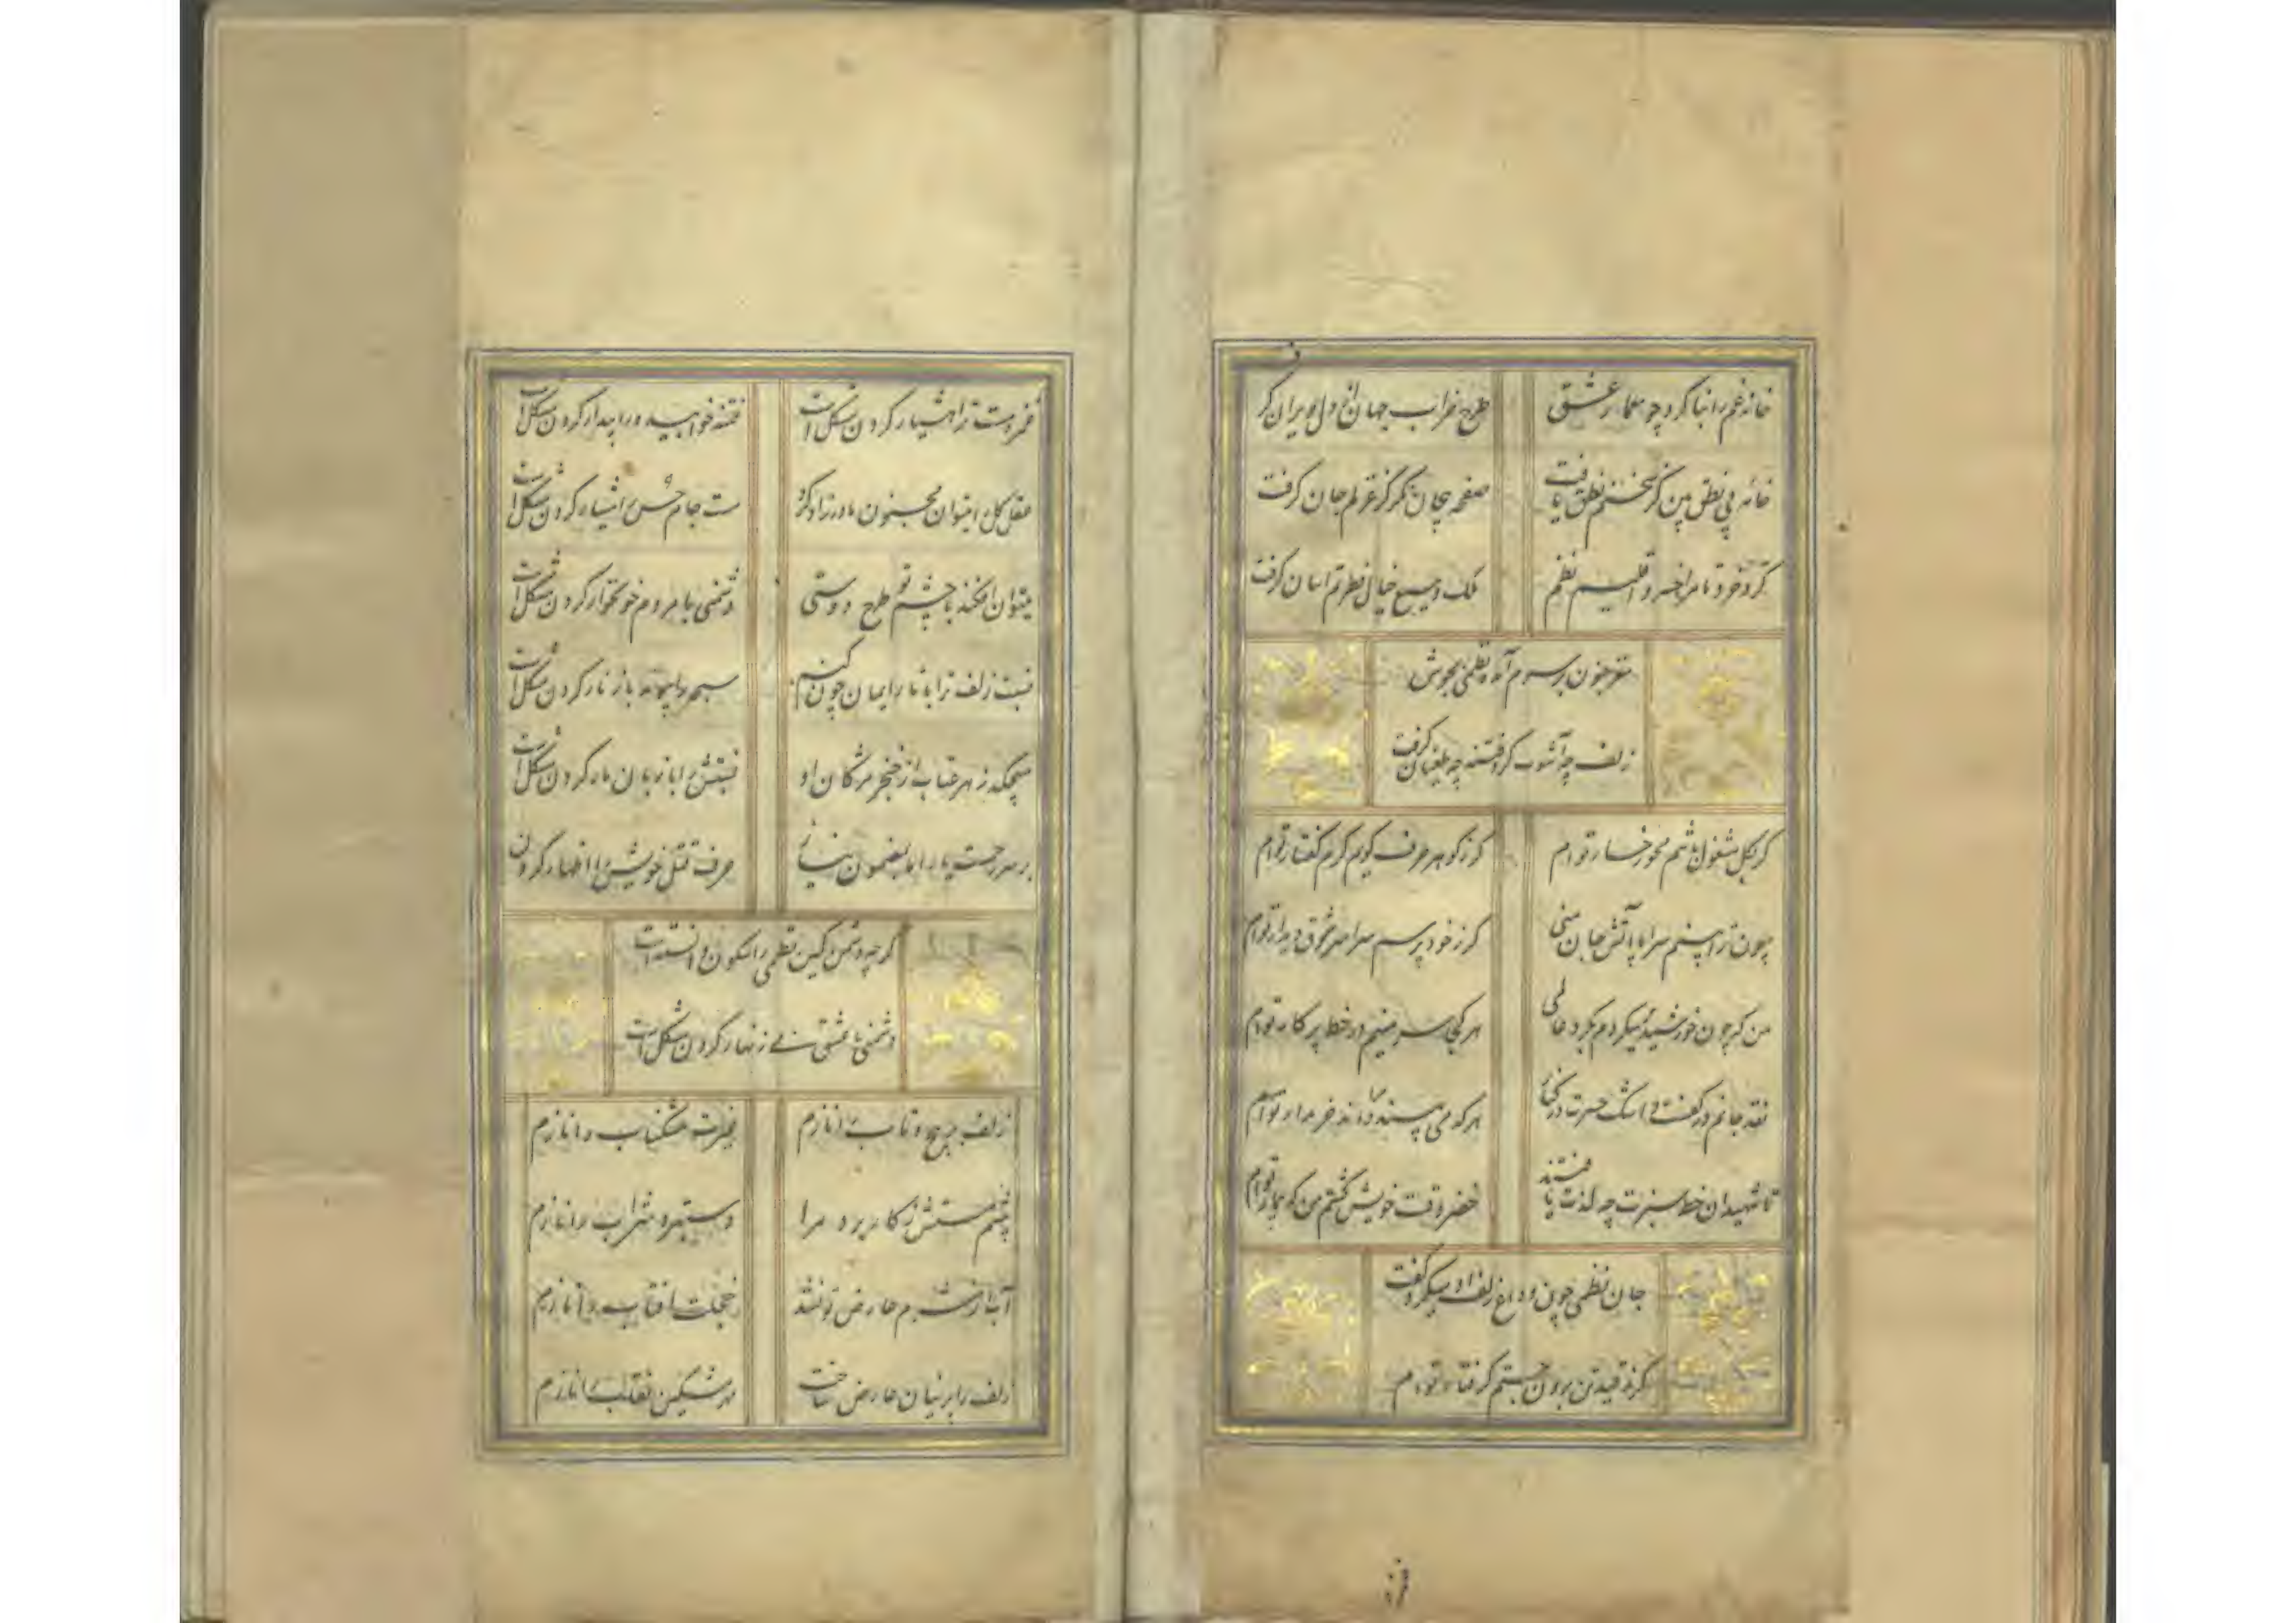 خانهٔ غم را بنا کرد چو معمار عشق
طرح خراب جهان از دل ویران گرفت
خانه نطق من گر سخنم نطق یافت
صفحه بیجان نگر کز غزلم جان گرفت
کرد خرد نامزد خسرو اقلیم نظم
ملک وسیع خیال فطرتم آسان گرفت
جنون بر سرم آمده نظمی بجوش
زلف چه آشوب کرد فتنه چه طغیان گرفت
گر بگل مشغول باشم محو رخسار توام
گر ز گوهر حرف گویم گرم گفتار توام
چون ترا بینم سراپا آتش جان منی
گر ز خود پرسم سراسر شوق دیدار توام
من که چون خورشید میگردم بگرد عالمی
هر کجا سر مینهم در خط پرکار توام
نقد جانم در کف و اشک حسرت در کنار
هر که می بیند بداند خریدار توام
تا شهیدان خط سبزت چه لذت یافتند
خضر وقت خویش گشتم من که بیمار توام
جان نظمی چون وداع زلف او میکرد گفت
گر ز قید تن برون جستم گرفتار توام
غمزه مست ترا هشیار کردن مشکل است
فتنه خوابیده را بیدار کردن مشکل است
عقل کل را میتوان مجنون مادرزاد کرد
مست جام حسن را هشیار کردن مشکل است
میتوان افکند با چشم تو طرح دوستی
دشمنی با مردم خونخوار کردن مشکل است
نسبت زلف ترا با تار ایمان چون کنم
سبحه را پیوند با زنار کردن مشکل است
میچکد زهر عتاب از خنجر مژگان او
نسبتش را با زبان مار کردن مشکل است
بر سر رحمست یار اما بمضمون نیاز
حرف قتل خویش را اظهار کردن
گرچه دشمن کین نظمی را سکون دانسته است
دشمنی با عشق بی زنهار کردن مشکل است
زلف پر پیچ و تاب را نازم
غیرت مشکناب را نازم
چشم مستش ز کار برد مرا
دستبرد شراب را نازم
آب از شرم عارض تو نشد
خجلت آفتاب را نازم
زلف را پرنیان عارض ساخت
مشکین نقاب را نازم